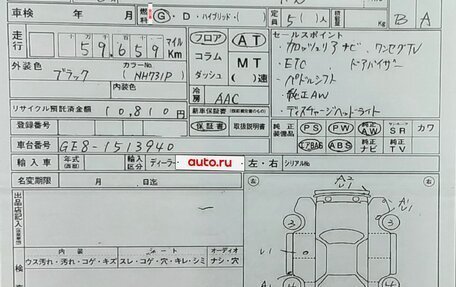 車検 年 月 燃料 G・D・ハイブリッド・( ) 定員 5(人) B A
走行 59,659 マイル Km フロア AT セールスポイント
外装色 カラーNo コラム MT カロッツェリアナビ、ワンセグTV
ブラック (NH731P) ダッシュ ( )速 ・ETC ドアバイザー
・パドルシフト
冷房 AAC ・純正AW
リサイクル預託済金額 10,810円 ・ディスチャージヘッドライト
登録番号 保証書 取扱説明書 純正装備 PS PW AW SR カワ
車台番号 GE8-1513940 エアBAG ABS 純正ナビ 純正TV
輸入車 年式 輸入区分 ディーラー auto.ru 左・右 シリアルNo
名変期限 月 日迄 左 右
A2 U1
A1 U1
出品店記入 2 3
内装 シート オーディオ U1
ウス汚れ・汚れ・コゲ・キズ スレ・コゲ・穴・キレ・シミ ナシ・穴
検 4 4